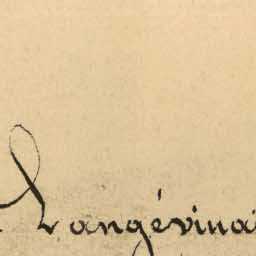 Langévinai